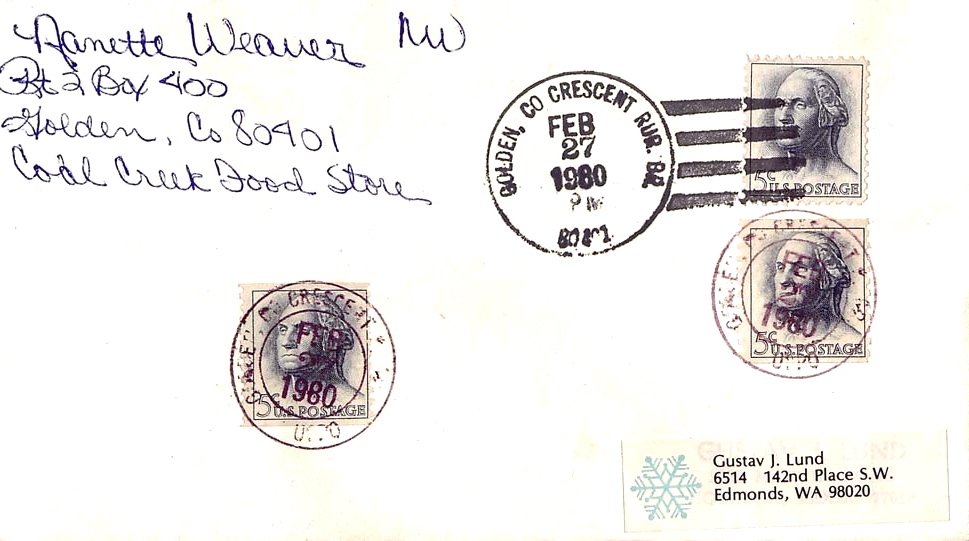 Nanette Weaver NW
Rt 2 Box 400
Golden, Co 80401
Coal Creek Food Store
GOLDEN, CO CRESCENT RUR. BR.
FEB
27
1980
PM
5¢ U.S. POSTAGE
CRESCENT
FEB
1980
5¢ U.S. POSTAGE
CRESCENT
FEB
1980
5¢ U.S. POSTAGE
GUSTAV J. LUND
Gustav J. Lund
6514 142nd Place S.W.
Edmonds, WA 98020